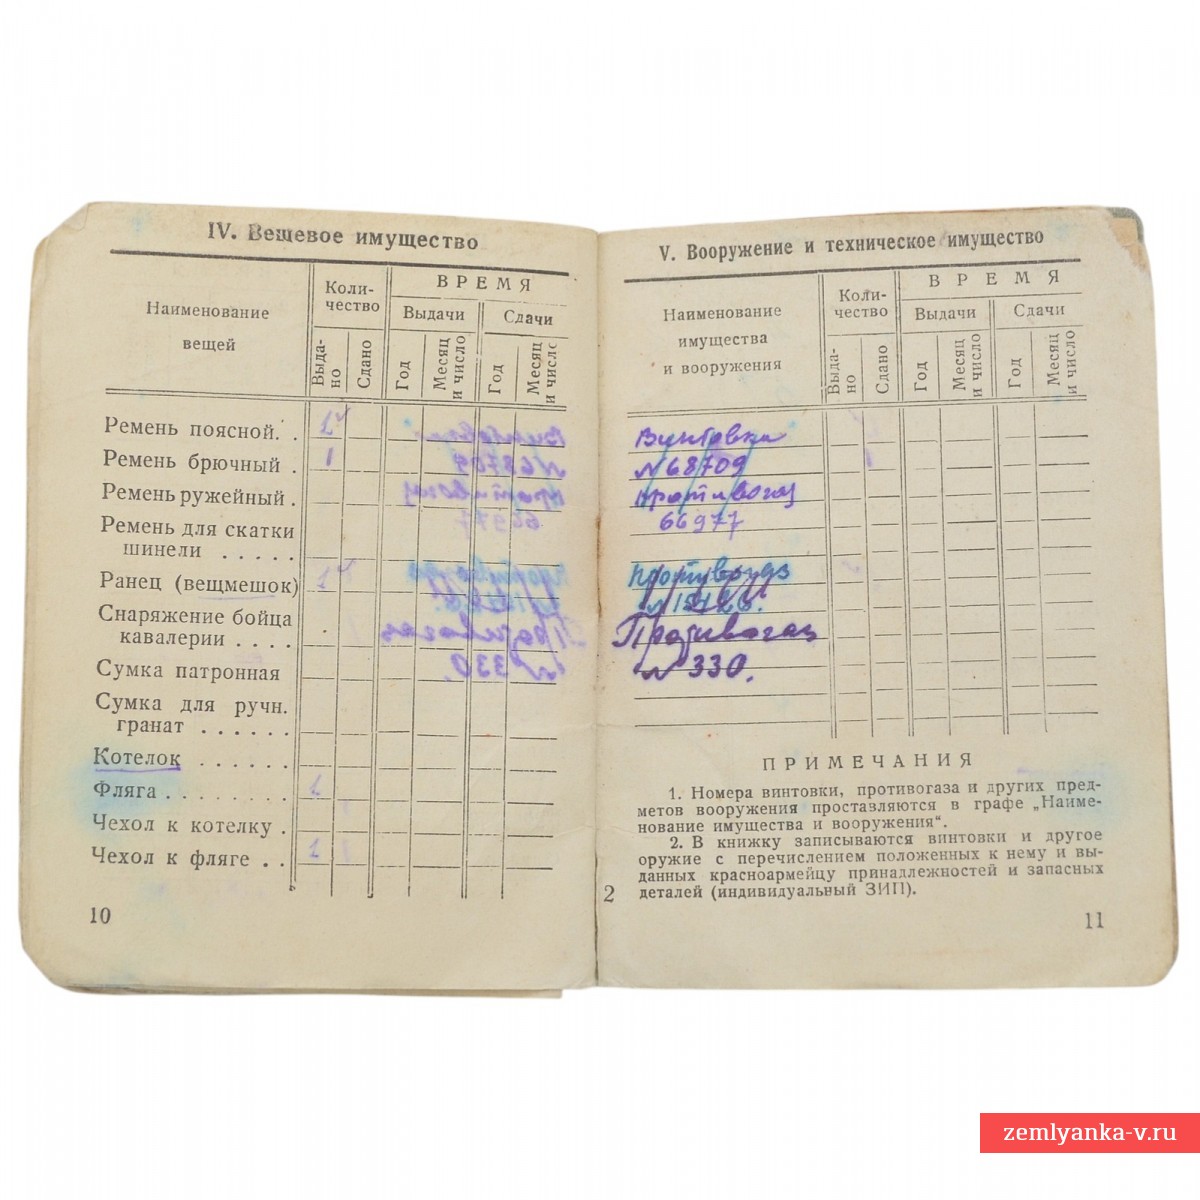 IV. Вещевое имущество
Наименование
вещей
Коли-
чество
ВРЕМЯ
Выдачи
Сдачи
Выда-
но
Сдано
Год
Месяц
и число
Год
Месяц
и число
Ремень поясной. . 1
Ремень брючный . 1
Ремень ружейный .
Ремень для скатки
шинели . . . . .
Ранец (вещмешок) 1
Снаряжение бойца
кавалерии . . . .
Сумка патронная
Сумка для ручн.
гранат . . . . . .
Котелок . . . . . .
Фляга . . . . . . . . 1
Чехол к котелку .
Чехол к фляге . . 1
10
V. Вооружение и техническое имущество
Наименование
имущества
и вооружения
Коли-
чество
ВРЕМЯ
Выдачи
Сдачи
Выда-
но
Сдано
Год
Месяц
и число
Год
Месяц
и число
Винтовка
№68709 1
Противогаз
66977
Противогаз
Противогаз
№330.
ПРИМЕЧАНИЯ
1. Номера винтовки, противогаза и других пред-
метов вооружения проставляются в графе „Наиме-
нование имущества и вооружения“.
2. В книжку записываются винтовки и другое
оружие с перечислением положенных к нему и вы-
данных красноармейцу принадлежностей и запасных
деталей (индивидуальный ЗИП).
2
11
zemlyanka-v.ru